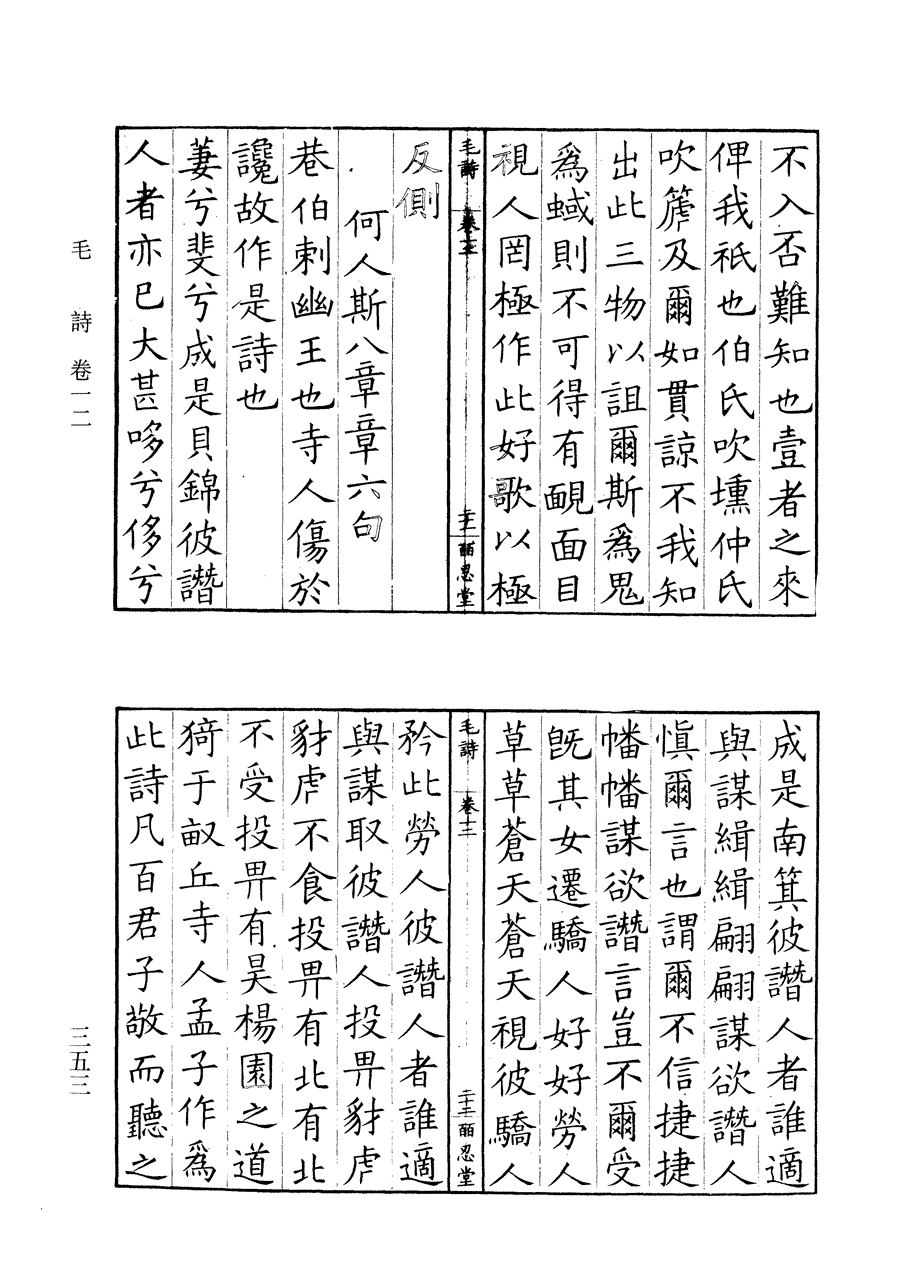 不入否難知也壹者之來
俾我祇也伯氏吹壎仲氏
吹篪及爾如貫諒不我知
出此三物以詛爾斯爲鬼
爲蜮則不可得有靦面目
視人罔極作此好歌以極
毛詩 卷十二 二十二 皕忍堂
反側
何人斯八章章六句
巷伯刺幽王也寺人傷於
讒故作是詩也
萋兮斐兮成是貝錦彼譖
人者亦已大甚哆兮侈兮
成是南箕彼譖人者誰適
與謀緝緝翩翩謀欲譖人
慎爾言也謂爾不信捷捷
幡幡謀欲譖言豈不爾受
旣其女遷驕人好好勞人
草草蒼天蒼天視彼驕人
毛詩 卷十二 二十三 皕忍堂
矜此勞人彼譖人者誰適
與謀取彼譖人投畀豺虎
豺虎不食投畀有北有北
不受投畀有昊楊園之道
猗于畝丘寺人孟子作爲
此詩凡百君子敬而聽之
毛詩卷一二
三五三